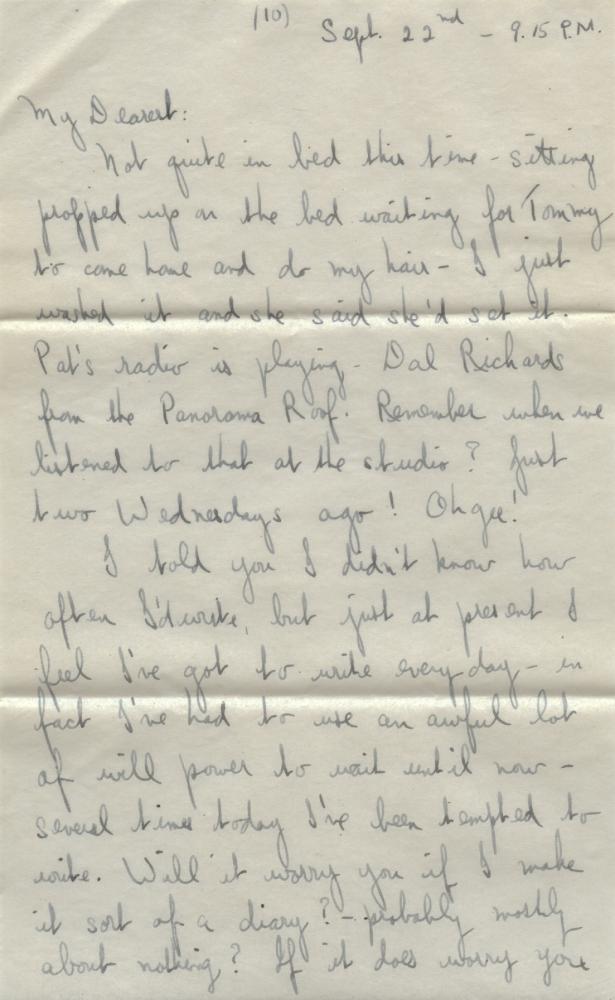 (10)
Sept. 22nd - 9.15 P.M.
My Dearest:
Not quite in bed this time - sitting
propped up on the bed waiting for Tommy
to come home and do my hair - I just
washed it and she said she'd set it.
Pat's radio is playing - Dal Richards
from the Panorama Roof. Remember when we
listened to that at the studio? Just
two Wednesdays ago! Oh gee!
I told you I didn't know how
often I'd write, but just at present I
feel I've got to write every day - in
fact I've had to use an awful lot
of will power to wait until now -
several times today I've been tempted to
write. Will it worry you if I make
it sort of a diary? - probably mostly
about nothing? If it does worry you